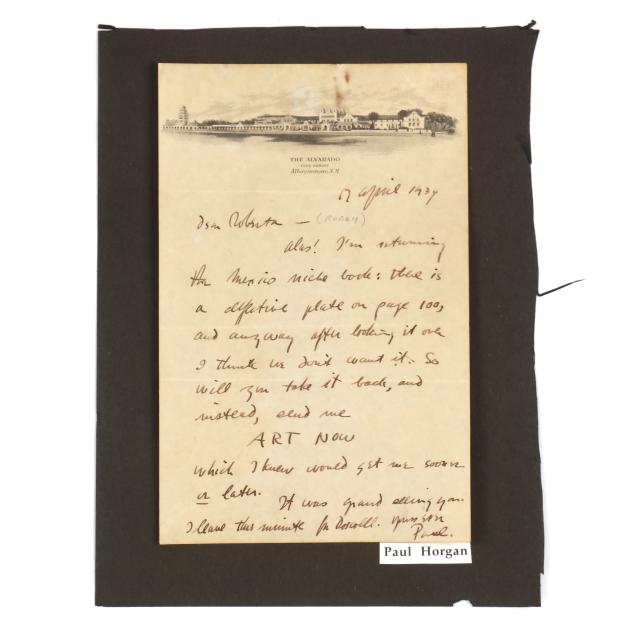 THE ALVARADO
FRED HARVEY
Albuquerque, N.M.
17 April 1934
Dear Roberta — (ROBBY)
Alas! I'm returning
the Mexico niche book: there is
a defective plate on page 100,
and anyway after looking it over
I think we don't want it. So
will you take it back, and
instead, send me
ART NOW
which I knew would get me sooner
or later.
It was grand seeing you.
I leave this minute for Roswell.
Paul.
Paul Horgan